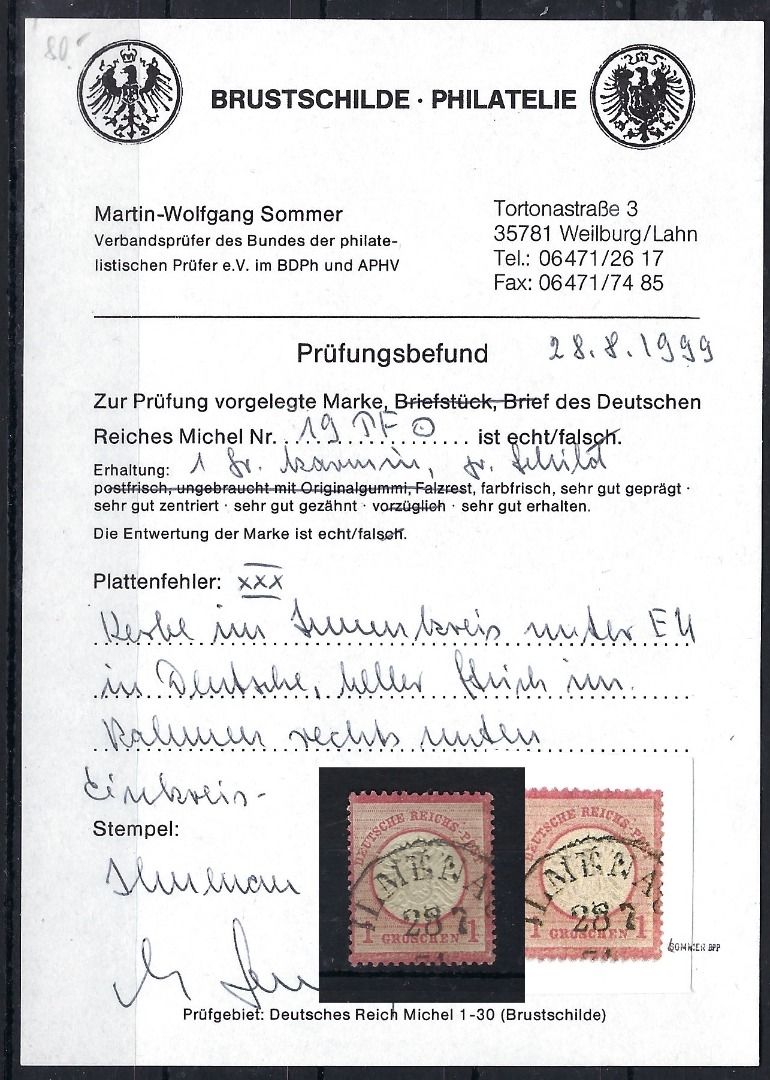 80.-
BRUSTSCHILDE · PHILATELIE
Martin-Wolfgang Sommer
Verbandsprüfer des Bundes der philate-
listischen Prüfer e.V. im BDPh und APHV
Tortonastraße 3
35781 Weilburg/Lahn
Tel.: 06471/26 17
Fax: 06471/74 85
Prüfungsbefund 28.8.1999
Zur Prüfung vorgelegte Marke, Briefstück, Brief des Deutschen
Reiches Michel Nr. 19 PF ⊙ ist echt/falsch.
Erhaltung: 1 Gr. karmin, gr. Schild
postfrisch, ungebraucht mit Originalgummi, Falzrest, farbfrisch, sehr gut geprägt ·
sehr gut zentriert · sehr gut gezähnt · vorzüglich · sehr gut erhalten.
Die Entwertung der Marke ist echt/falsch.
Plattenfehler: xxx
Kerbe im Innenkreis unter EU
in Deutsche, heller Strich im
Rahmen rechts unten
Einkreis-
Stempel:
Ilmenau
DEUTSCHE REICHS-POST
ILMENAU
28 7
1 GROSCHEN 1
DEUTSCHE REICHS-POST
ILMENAU
28 7
1 GROSCHEN 1
SOMMER BPP
Prüfgebiet: Deutsches Reich Michel 1-30 (Brustschilde)